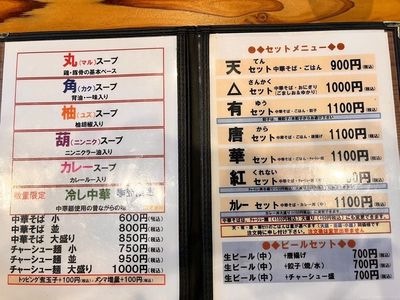 丸(マル)スープ
鶏・豚骨の基本ベース
角(カク)スープ
背油・一味入り
柚(ユズ)スープ
柚胡椒入り
葫(ニンニク)スープ
ニンニクラー油入り
カレースープ
カレールー入り
数量限定 冷し中華
中華そば 小 600円(税込)
中華そば 並 800円(税込)
中華そば 大盛り 850円(税込)
チャーシュー麺 小 750円(税込)
チャーシュー麺 並 950円(税込)
チャーシュー麺 大盛り 1000円(税込)
トッピング煮玉子+100円(税込) メンマ増量+100円(税込)
●◆●セットメニュー●◆●
天 てん セット 中華そば・ごはん 900円(税込)
△ さんかく セット 中華そば・おにぎり (ごましお&ゆかり) 1000円(税込)
有 ゆう セット 中華そば・ごはん・餃子 1100円(税込)
唐 から セット 中華そば・ごはん・唐揚げ 1100円(税込)
華 セット 1100円(税込)
紅 くれない セット 1100円(税込)
カレー セット 1100円(税込)
●◆●ビールセット●◆●
生ビール(中) +唐揚げ 700円(税込)
生ビール(中) +餃子(焼/水) 700円(税込)
生ビール(中) +チャーシュー盛 700円(税込)